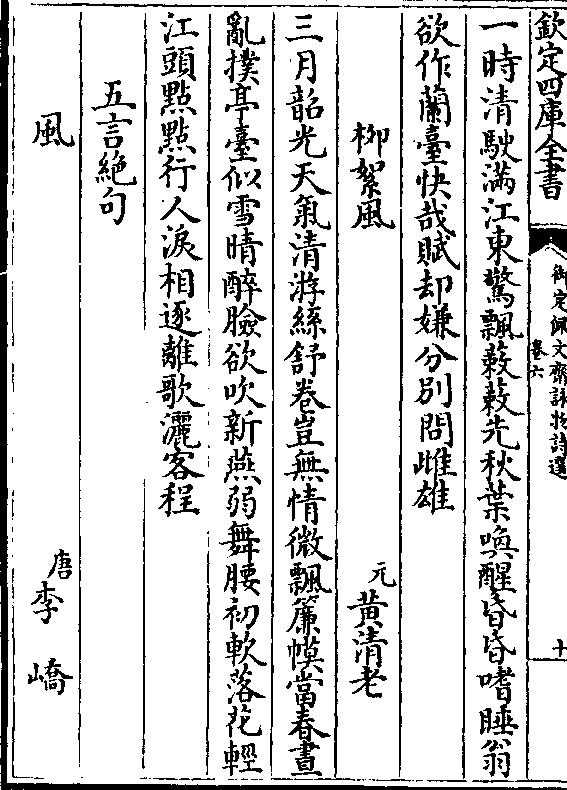 欽定四庫全書
御定佩文齋詠物詩選
卷六
十
一時清駛滿江東驚飄蔌蔌先秋葉喚醒昏昏嗜睡翁
欲作蘭臺快哉賦却嫌分別問雌雄
柳絮風　元　黃清老
三月韶光天氣清游絲舒卷豈無情微飄簾幙當春晝
亂撲亭臺似雪晴醉臉欲吹新燕弱舞腰初軟落花輕
江頭點點行人淚相逐離歌灑客程
五言絶句
風　唐　李嶠